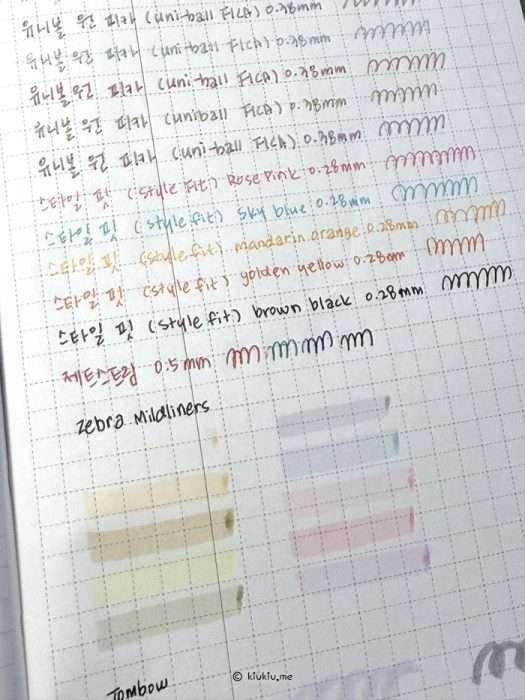 유니볼 원 피카 (uni-ball FICA) 0.38mm
유니볼 원 피카 (uni-ball FICA) 0.38mm
유니볼 원 피카 (uni-ball FICA) 0.38mm
유니볼 원 피카 (uniball FICA) 0.38mm
유니볼 원 피카 (uni-ball FICA) 0.38mm
스타일 핏 (style Fit) Rose Pink 0.28mm
스타일 핏 (style fit) sky blue 0.28mm
스타일 핏 (style fit) mandarin orange 0.28mm
스타일 핏 (style fit) golden yellow 0.28mm
스타일 핏 (style fit) brown black 0.28mm
제트스트림 0.5mm
zebra Mildliners
Tombow
© kiukiu.me